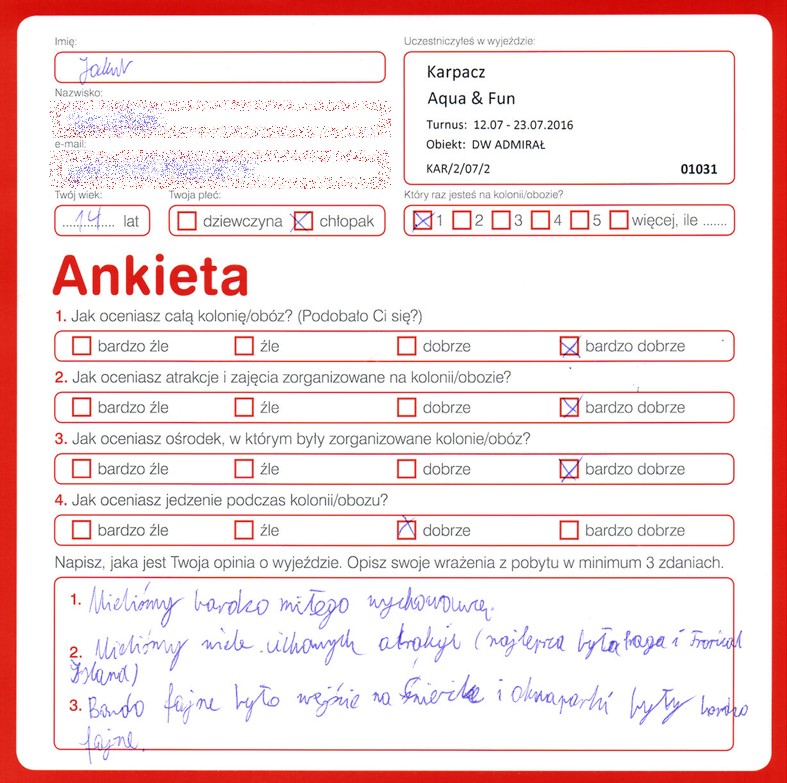 Imię:
Jakub
Uczestniczyłeś w wyjeździe:
Karpacz
Aqua & Fun
Turnus: 12.07 - 23.07.2016
Obiekt: DW ADMIRAŁ
KAR/2/07/2 01031
Nazwisko:
e-mail:
Twój wiek:
14 lat
Twoja płeć:
dziewczyna chłopak
Który raz jesteś na kolonii/obozie?
1 2 3 4 5 więcej, ile .......
Ankieta
1. Jak oceniasz całą kolonię/obóz? (Podobało Ci się?)
bardzo źle źle dobrze bardzo dobrze
2. Jak oceniasz atrakcje i zajęcia zorganizowane na kolonii/obozie?
bardzo źle źle dobrze bardzo dobrze
3. Jak oceniasz ośrodek, w którym były zorganizowane kolonie/obóz?
bardzo źle źle dobrze bardzo dobrze
4. Jak oceniasz jedzenie podczas kolonii/obozu?
bardzo źle źle dobrze bardzo dobrze
Napisz, jaka jest Twoja opinia o wyjeździe. Opisz swoje wrażenia z pobytu w minimum 3 zdaniach.
1. Mieliśmy bardzo miłego wychowawcę.
2. Mieliśmy wiele atrakcji (najlepsza była Praga i Tropical
Island)
3. Bardo fajne było wejście na i akwaparki były bardzo
fajne.